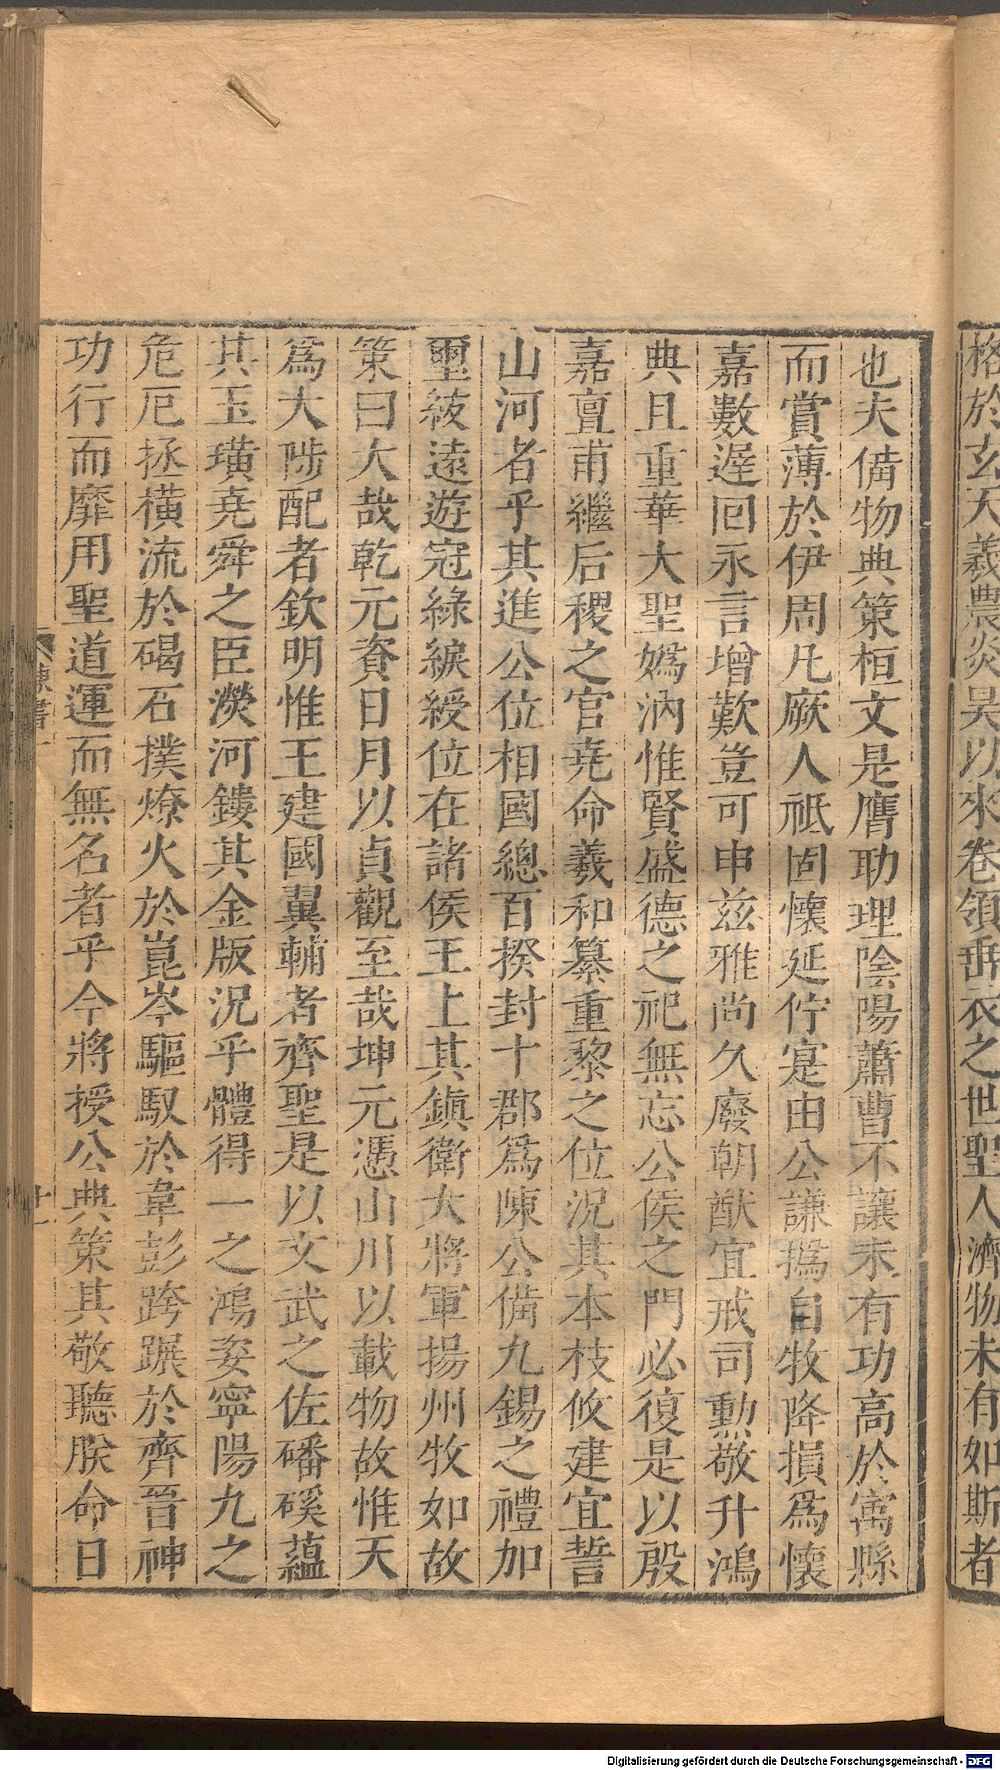 格於玄天羲農炎昊以來卷領垂衣之世聖人濟物未有如斯者
也夫備物典策桓文是膺助理陰陽蕭曹不讓未有功高於寓縣
而賞薄於伊周凡厥人祗固懷延佇寔由公謙撝自牧降損爲懷
嘉數遲回永言增歎豈可申茲雅尚久廢朝猷宜戒司勳敬升鴻
典且重華大聖嬀汭惟賢盛德之祀無忘公侯之門必復是以殷
嘉亶甫繼后稷之官堯命羲和纂重黎之位況其本枝攸建宜誓
山河者乎其進公位相國總百揆封十郡爲陳公備九錫之禮加
璽紱遠遊冠綠綟綬位在諸侯王上其鎮衛大將軍揚州牧如故
策曰大哉乾元資日月以貞觀至哉坤元憑山川以載物故惟天
爲大陟配者欽明惟王建國翼輔者齊聖是以文武之佐磻磎蘊
其玉璜堯舜之臣濴河鏤其金版況乎體得一之鴻姿寧陽九之
危厄拯橫流於碣石撲燎火於崑岑驅馭於韋彭跨蹍於齊晉神
功行而靡用聖道運而無名者乎今將授公典策其敬聽朕命日
陳書一
十一
Digitalisierung gefördert durch die Deutsche Forschungsgemeinschaft - DFG